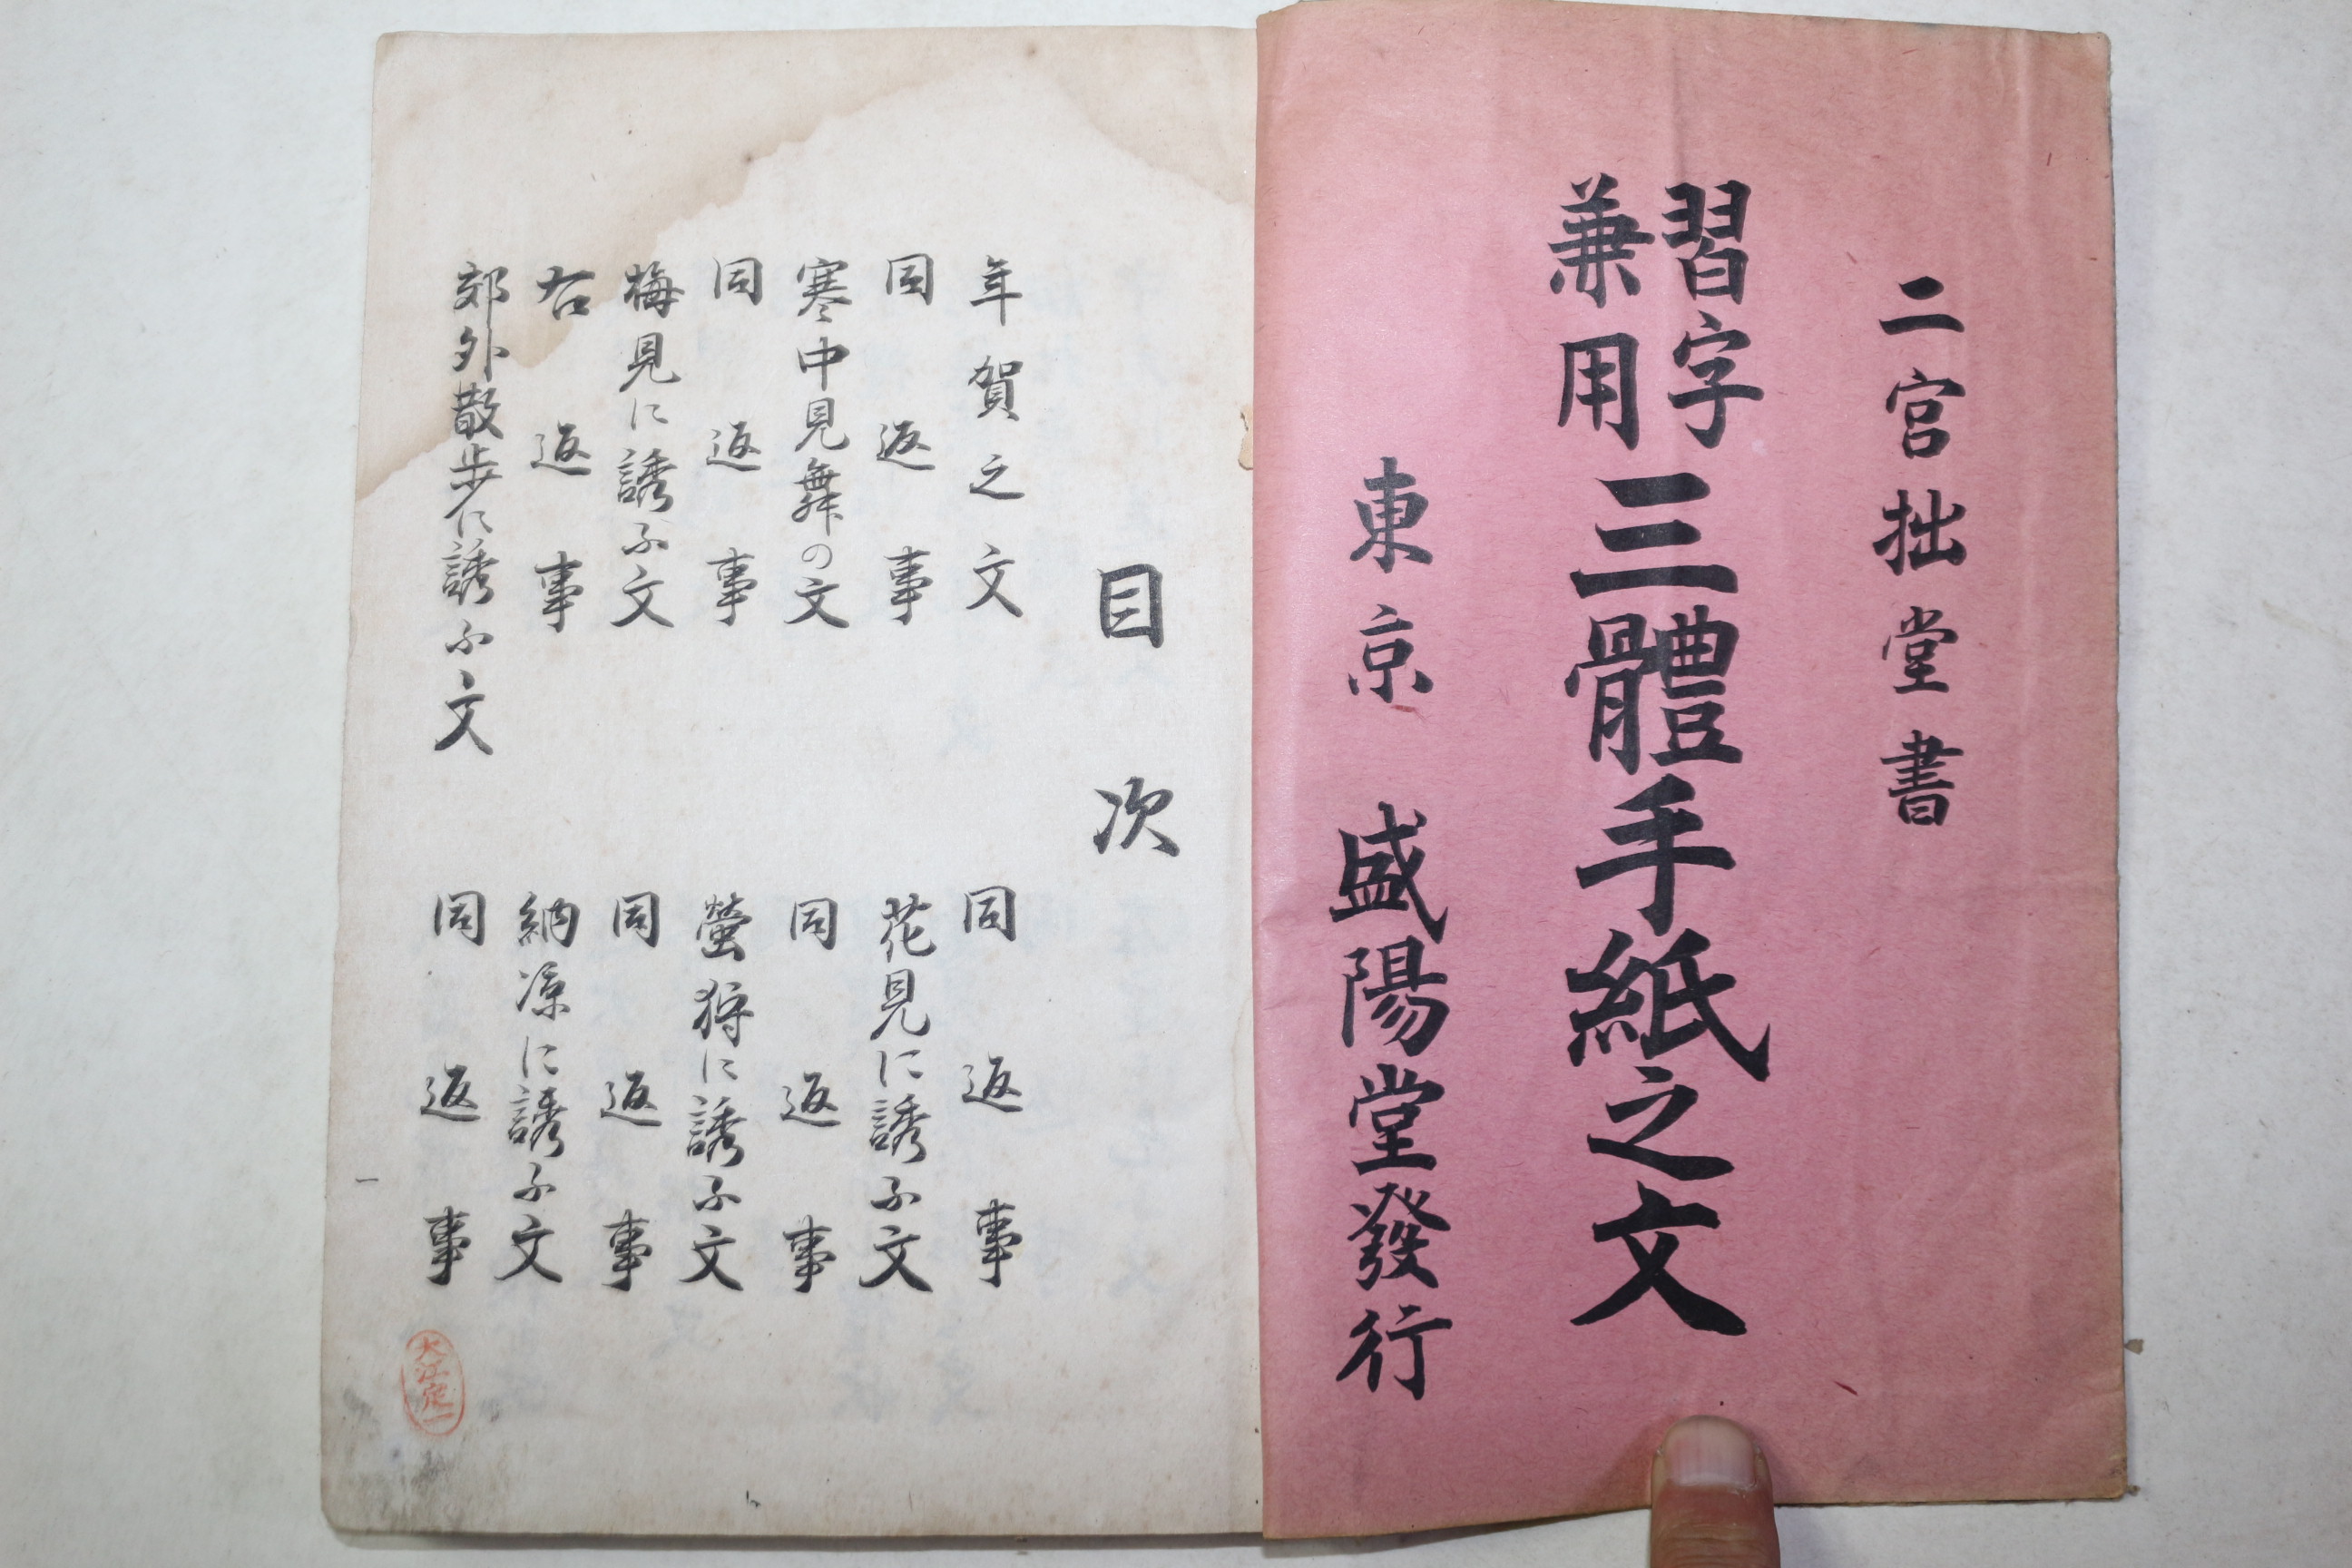 二宮拙堂書
習字
兼用
三體手紙之文
東京 盛陽堂發行
目次
年賀之文
同返事
寒中見舞の文
同返事
梅見に誘ふ文
右返事
郊外散歩に誘ふ文
同返事
花見に誘ふ文
同返事
螢狩に誘ふ文
同返事
納凉に誘ふ文
同返事
一
大江定一